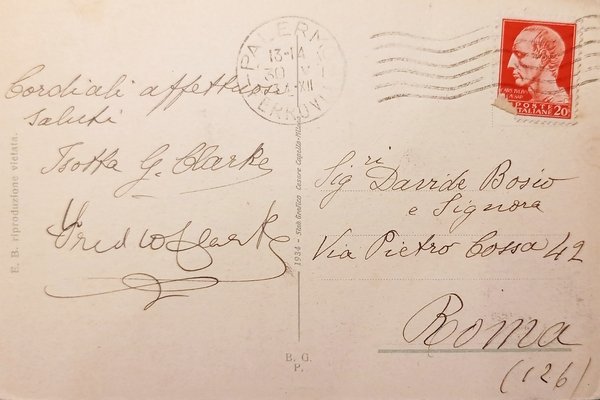 Cordiali affettuosi
saluti
Isotta G. Clarke
Fred W Clarke
E. B. riproduzione vietata.
1934 - Stab Grafico Cesare Capello - Milano
B. G.
P.
PALERMO
13-14
30
XII
FERROVIA
POSTE
ITALIANE 20
Sigri Davide Bosio
e Signora
Via Pietro Cossa 42
Roma
(126)